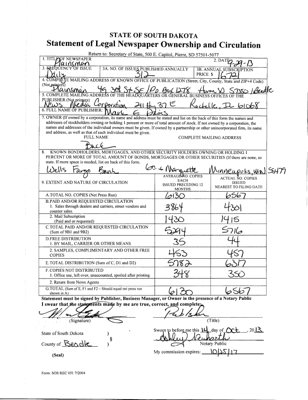 STATE OF SOUTH DAKOTA
Statement of Legal Newspaper Ownership and Circulation
Return to: Secretary of State, 500 E. Capitol, Pierre, SD 57501-5077
1. TITLE OF NEWSPAPER
Plainsman
2. DATE
9-29-13
3. FREQUENCY OF ISSUE
Daily
3A. NO. OF ISSUES PUBLISHED ANNUALLY
312
3B. ANNUAL SUBSCRIPTION
PRICE $
4. COMPLETE MAILING ADDRESS OF KNOWN OFFICE OF PUBLICATION (Street, City, County, State and ZIP+4 Code)
Plainsman 49 3rd St SE PO Box 1278 Huron SD 57350 Beadle
5. COMPLETE MAILING ADDRESS OF THE HEADQUARTERS OR GENERAL BUSINESS OFFICES OF THE
PUBLISHER
News Media Corporation 211 Hwy 38 E Rochelle, IL 61068
6. FULL NAME OF PUBLISHER:
Mark E Davis
7. OWNER (If owned by a corporation, its name and address must be stated and also the names and
addresses of stockholders owning or holding 1 percent or more of total amount of stock. If not owned by a corporation, the
names and addresses of the individual owners must be given. If owned by a partnership or other unincorporated firm, its name
and address, as well as that of each individual must be given.
FULL NAME
COMPLETE MAILING ADDRESS
8. KNOWN BONDHOLDERS, MORTGAGEES, AND OTHER SECURITY HOLDERS OWNING OR HOLDING 1
PERCENT OR MORE OF TOTAL AMOUNT OF BONDS, MORTGAGES OR OTHER SECURITIES (If there are none, so
state. If more space is needed, list on back of this form.
Wells Fargo Bank 6th & Marquette Minneapolis, MN 55479
9. EXTENT AND NATURE OF CIRCULATION
AVERAGE NO. COPIES
EACH ISSUE
PRECEDING 12
MONTHS
ACTUAL NO. COPIES
ISSUED
NEAREST TO FILING DATE
A. TOTAL NO. COPIES (Net Press Run)
6130
6567
B. PAID AND/OR REQUESTED CIRCULATION
1. Sales through dealers and carriers, street vendors and
counter sales.
3864
4301
2. Mail Subscription
(Paid and or requested)
1430
1415
C. TOTAL PAID AND/OR REQUESTED CIRCULATION
(Sum of 9B1 and 9B2)
5294
5716
D. FREE DISTRIBUTION
1. BY MAIL, CARRIER OR OTHER MEANS
35
44
2. SAMPLES, COMPLIMENTARY AND OTHER FREE
COPIES
453
457
E. TOTAL DISTRIBUTION (Sum of C, D1 and D2)
5782
6217
F. COPIES NOT DISTRIBUTED
1. Office use, left over, unaccounted, spoiled after printing
348
350
2. Return from News Agents
G. TOTAL (Sum of E, F1 and F2 - Should equal net press run
shown in A)
6130
6567
Statement must be signed by Publisher, Business Manager, or Owner in the presence of a Notary Public
I swear that the statements made by me are true, correct, and complete.
(Signature)
Publisher
(Title)
State of South Dakota )
County of Beadle )
(Seal)
Sworn to before me this 14 day of Oct, 2013
Notary Public
My commission expires: 10/25/17
Form: SOS REC 101 7/2004